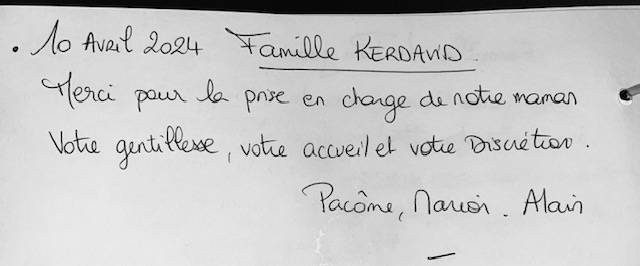 . 10 Avril 2024 Famille KERDAVID.
Merci pour la prise en charge de notre maman
Votre gentillesse, votre accueil et votre Discrétion.
Pacôme, Marion. Alain